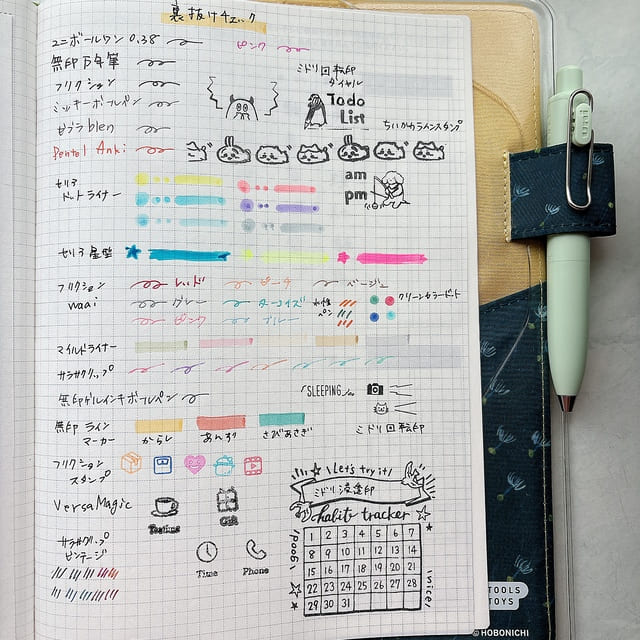 裏抜けチェック
ユニボールワン 0.38
ピンク
無印万年筆
フリクション
ミッキーボールペン
ゼブラ blen
Pentel Anki
ミドリ回転印
ダイヤル
Todo
List
ちいかわラインスタンプ
am
pm
セリア
ドットライナー
セリア星型
フリクション
waai
レッド
ピーチ
ベージュ
グレー
ターコイズ
ピンク
ブルー
水性
ペン
クリーンカラードット
マイルドライナー
サラサクリップ
無印ゲルインキボールペン
SLEEPING
ミドリ回転印
無印ライン
マーカー
からし
あんず
さびあさぎ
フリクション
スタンプ
VersaMagic
Teatime
Gift
Time
Phone
サラサクリップ
ビンテージ
Let's try it!
ミドリ浸透印
habit tracker
Good!
nice!
1 2 3 4 5 6 7
8 9 10 11 12 13 14
15 16 17 18 19 20 21
22 23 24 25 26 27 28
29 30 31
uni
TOOLS
TOYS
© HOBONICHI